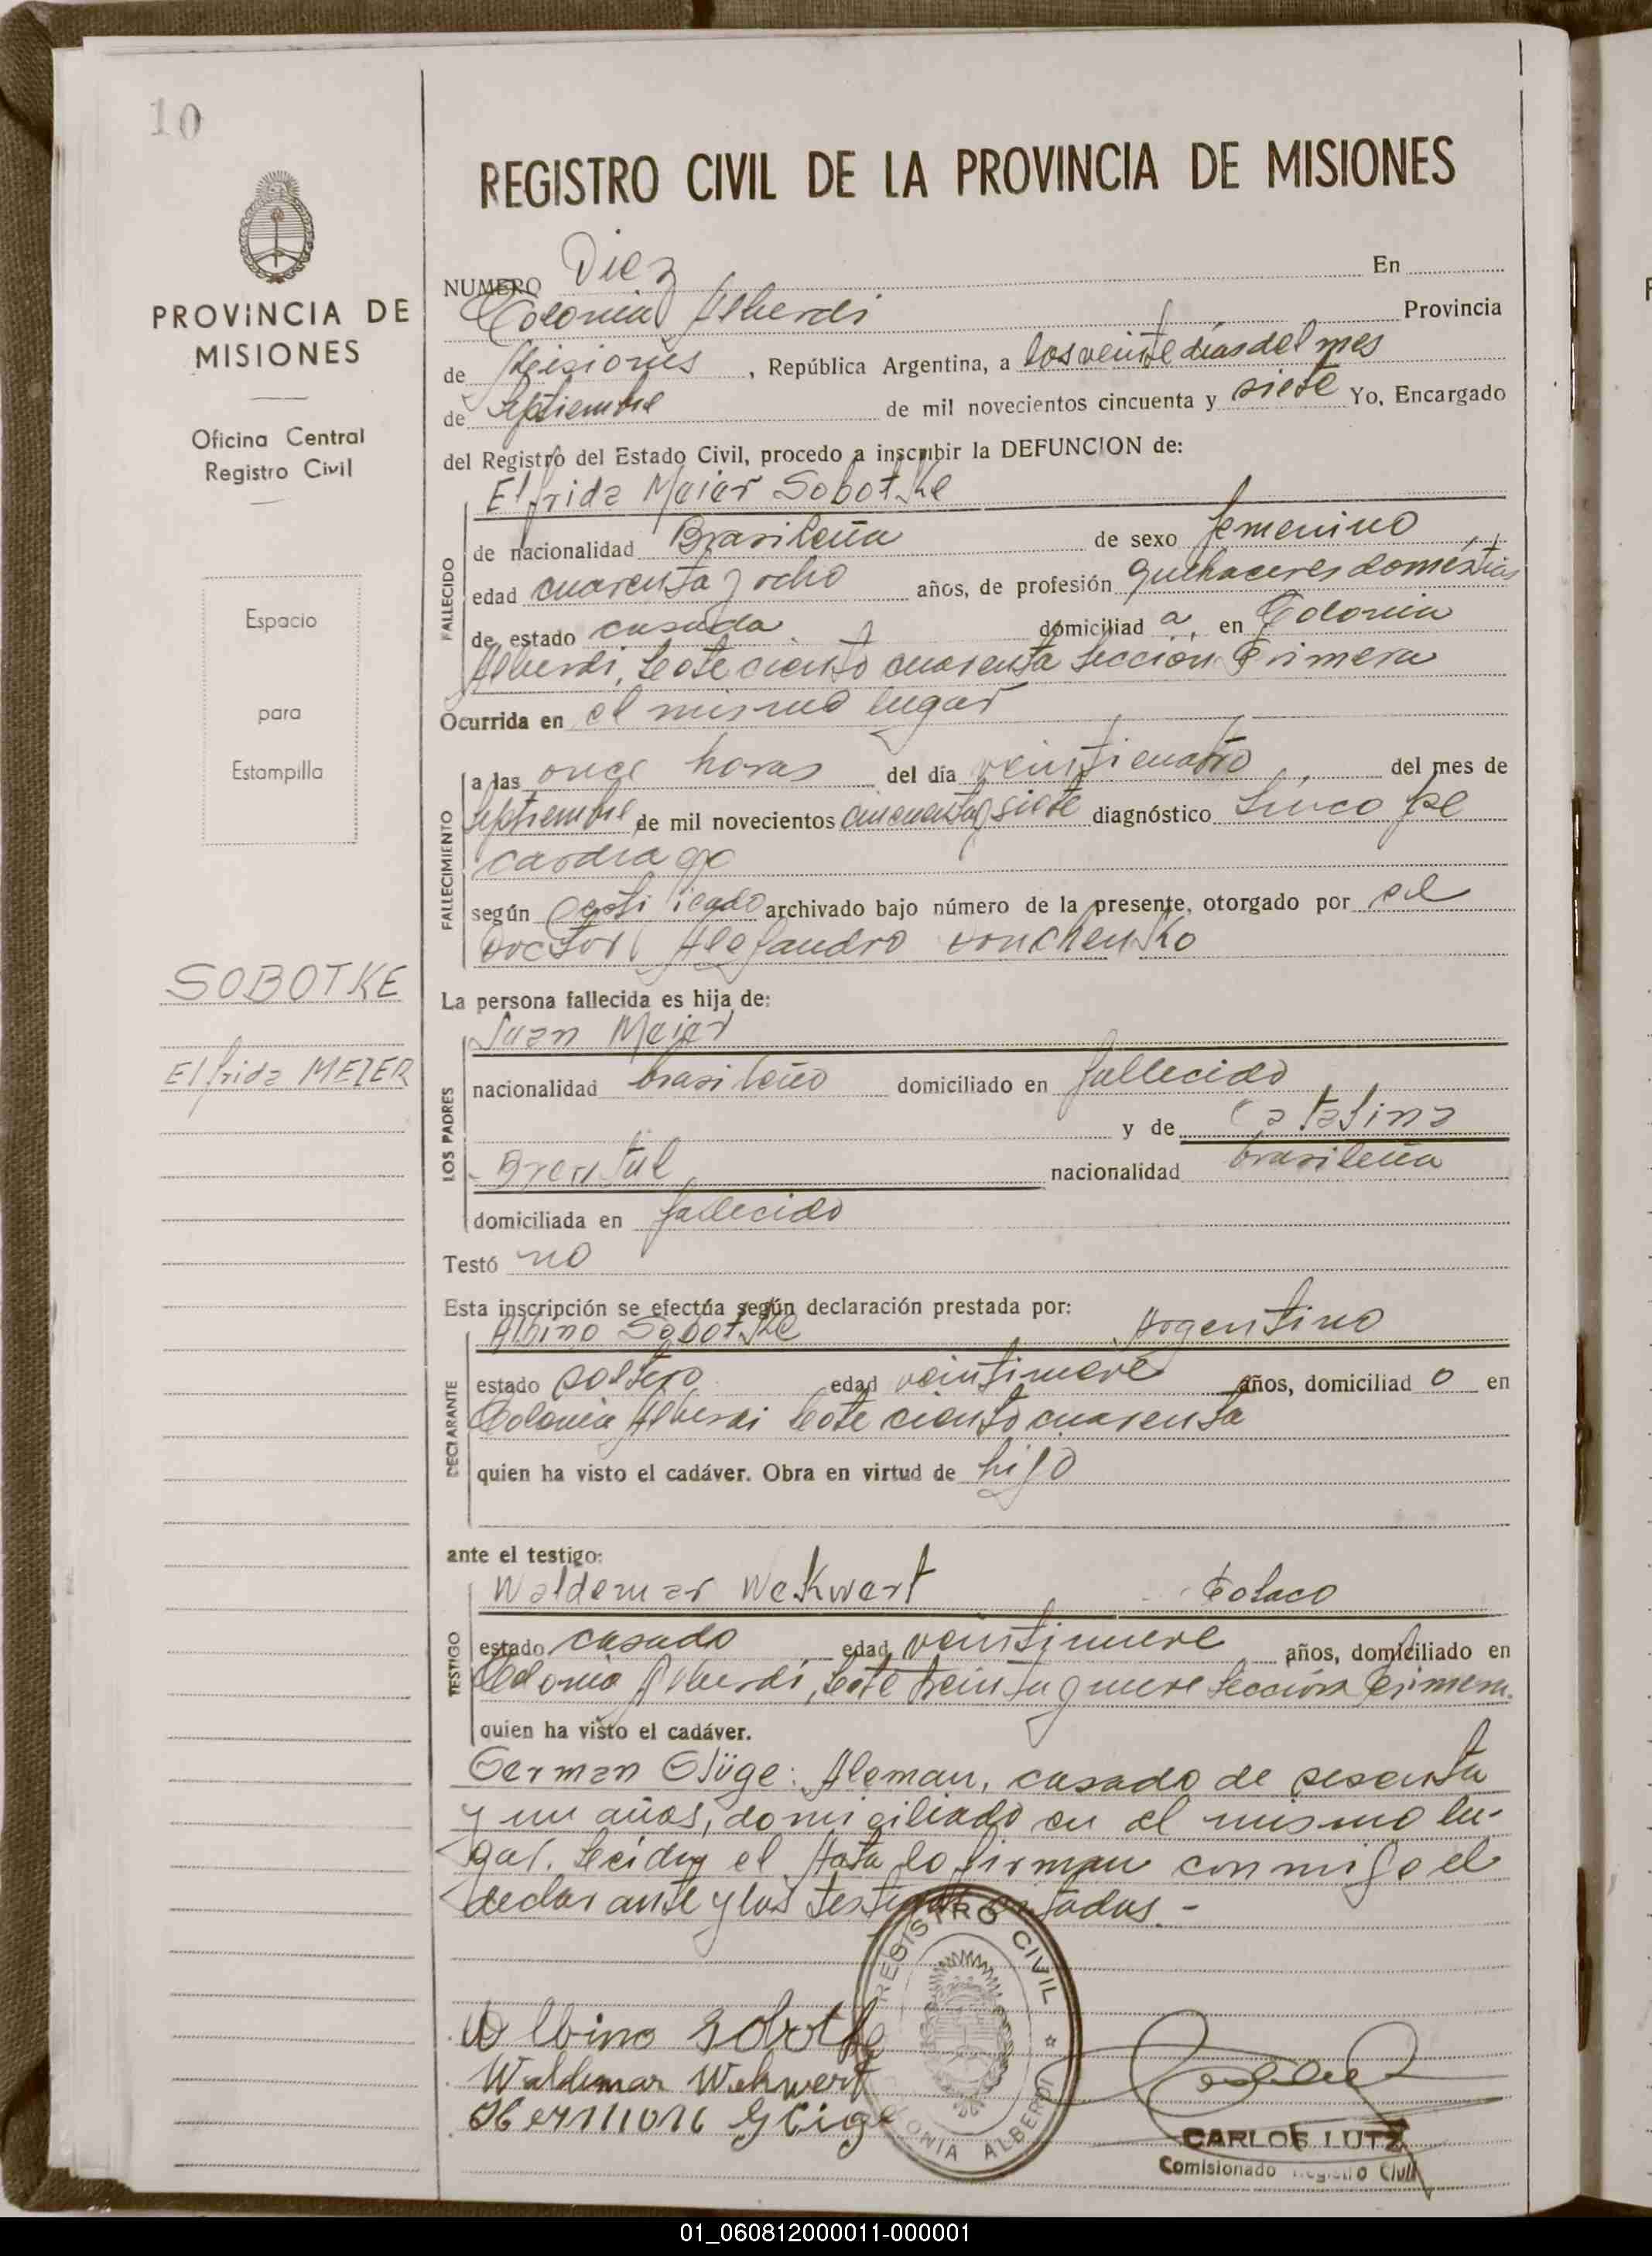 10
PROVINCIA DE
MISIONES
Oficina Central
Registro Civil
Espacio
para
Estampilla
SOBOTKE
Elfrida MEIER
REGISTRO CIVIL DE LA PROVINCIA DE MISIONES
NUMERO Diez En
Colonia Alberdi Provincia
de Misiones, República Argentina, a los veinte dias del mes
de Septiembre de mil novecientos cincuenta y siete Yo, Encargado
del Registro del Estado Civil, procedo a inscribir la DEFUNCION de:
Elfrida Meier Sobotke
FALLECIDO
de nacionalidad Brasileña de sexo femenino
edad cuarenta y ocho años, de profesión quehaceres domésticos
de estado casada domiciliad a en Colonia
Alberdi, Lote ciento cuarenta Seccion Primera
Ocurrida en el mismo lugar
FALLECIMIENTO
a las once horas del día veinticuatro del mes de
Septiembre de mil novecientos cincuenta y siete diagnóstico Sincope
cardiaco
según certificado archivado bajo número de la presente, otorgado por el
Doctor Alejandro
La persona fallecida es hija de:
LOS PADRES
Juan Meier
nacionalidad brasileño domiciliado en fallecido
y de Catalina
nacionalidad brasileña
domiciliada en fallecido
Testó no
Esta inscripción se efectúa según declaración prestada por:
DECLARANTE
Albino Sobotke Argentino
estado soltero edad veintinueve años, domiciliad o en
Colonia Alberdi Lote ciento cuarenta
quien ha visto el cadáver. Obra en virtud de hijo
ante el testigo:
TESTIGO
Waldemar Wekwert Polaco
estado casado edad veintinueve años, domiciliado en
Colonia Alberdi, Lote treinta y nueve Seccion Primera.
quien ha visto el cadáver.
German Glüge: Aleman, casado de sesenta
y un años, domiciliado en el mismo lu-
gar. Leida el Acta lo firman conmigo el
declarante y los testigos citados.-
REGISTRO CIVIL
COLONIA ALBERDI
Albino Sobotke
Waldemar Wekwert
Hermann Glüge
CARLOS LUTZ
Comisionado Registro Civil
01_060812000011-000001